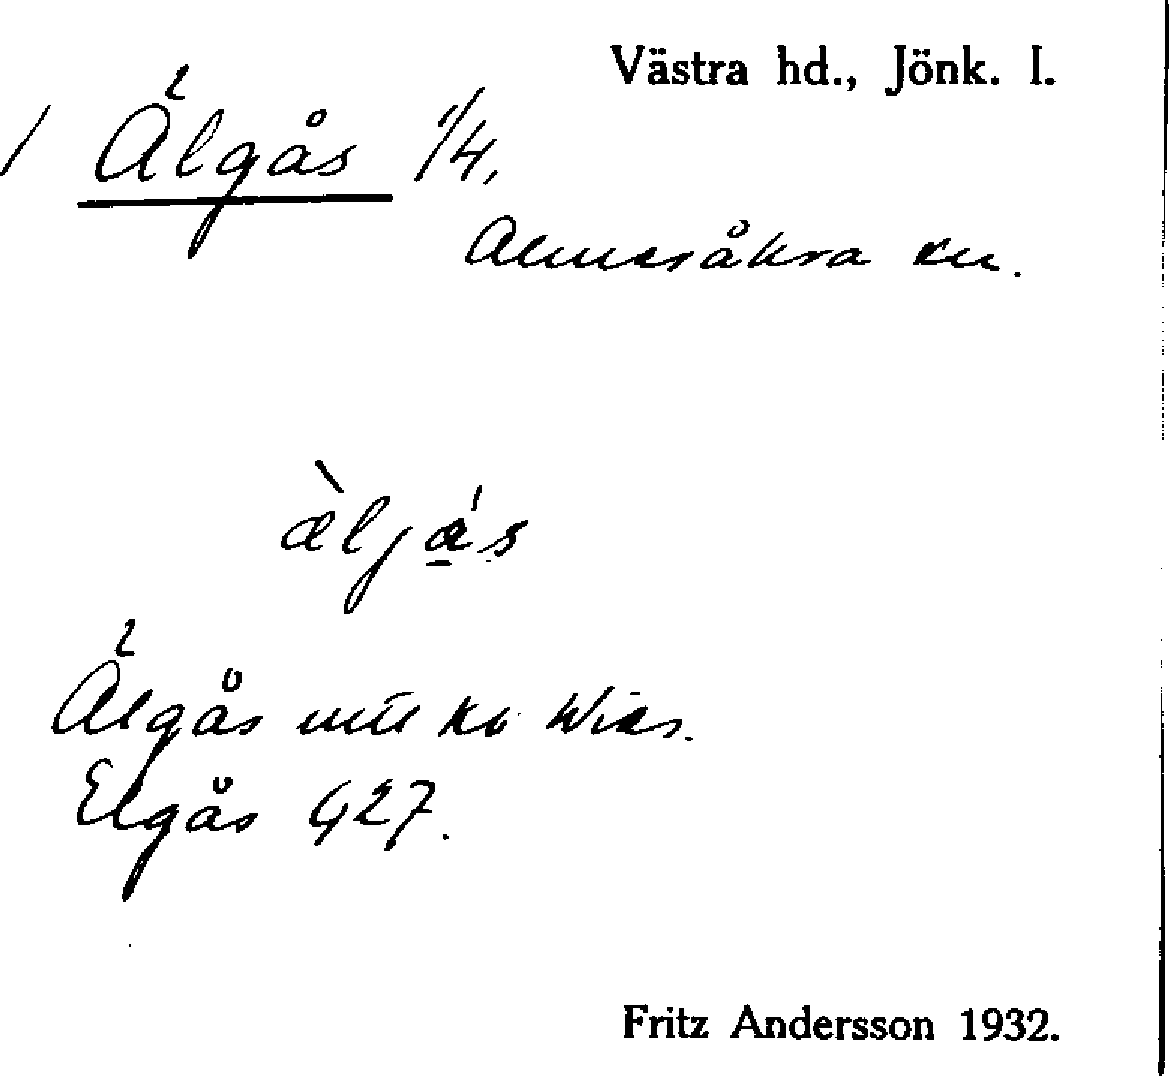 Västra hd., Jönk. l.
/ Älgås 1/4,
Almesåkra sn.
æ̀ljás
Älgås mtl Ko Wies.
Elgås G27.
Fritz Andersson 1932.